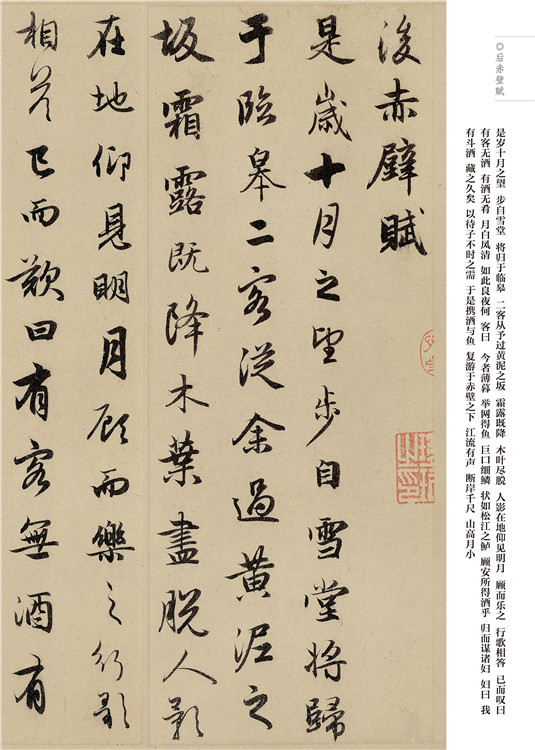 ◎后赤壁赋
是岁十月之望 步自雪堂 将归于临皋 二客从予过黄泥之坂 霜露既降 木叶尽脱 人影在地仰见明月 顾而乐之 行歌相答 已而叹曰
有客无酒 有酒无肴 月白风清 如此良夜何 客曰 今者薄暮 举网得鱼 巨口细鳞 状如松江之鲈 顾安所得酒乎 归而谋诸妇 妇曰 我
有斗酒 藏之久矣 以待子不时之需 于是携酒与鱼 复游于赤壁之下 江流有声 断岸千尺 山高月小
後赤壁賦
是歲十月之望步自雪堂將歸
于臨皋二客從余過黃泥之
坂霜露既降木葉盡脫人影
在地仰見明月顧而樂之行歌
相答已而歎曰有客無酒有